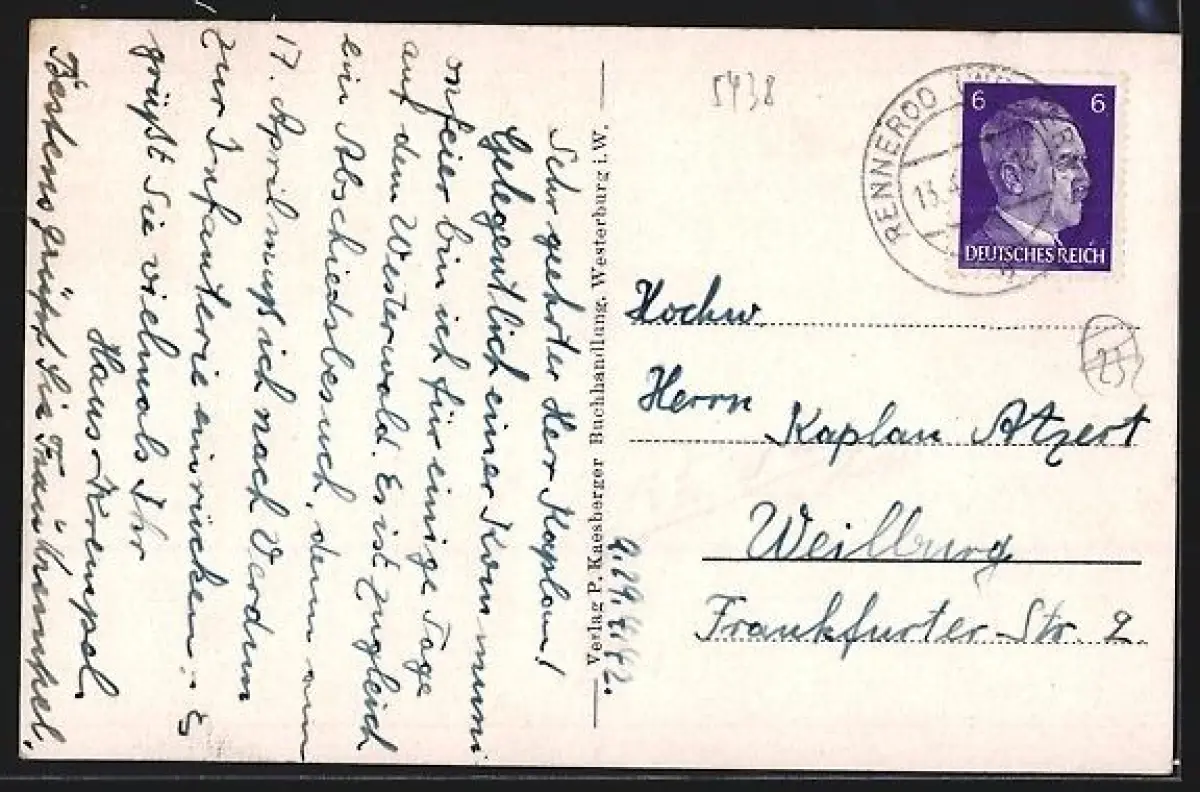 Sehr geehrter Herr Kaplan!
Gelegentlich einer Kommuni
onfeier bin ich für einige Tage
auf dem Westerwald. Es ist zugleich
ein Abschiedsbesuch, denn am
17. April muß ich nach Verdun
zur Infanterie einrücken. Es
grüßt Sie vielmals Ihr
Hans Krempel.
Bestens grüßt Sie Frau Krempel.
Verlag P. Kaesberger Buchhandlung, Westerburg i. W.
5438
RENNEROD
13.4
b
6 6
DEUTSCHES REICH
Hochw.
Herrn
Kaplan Atzert
Weilburg
Frankfurter Str. 2
23